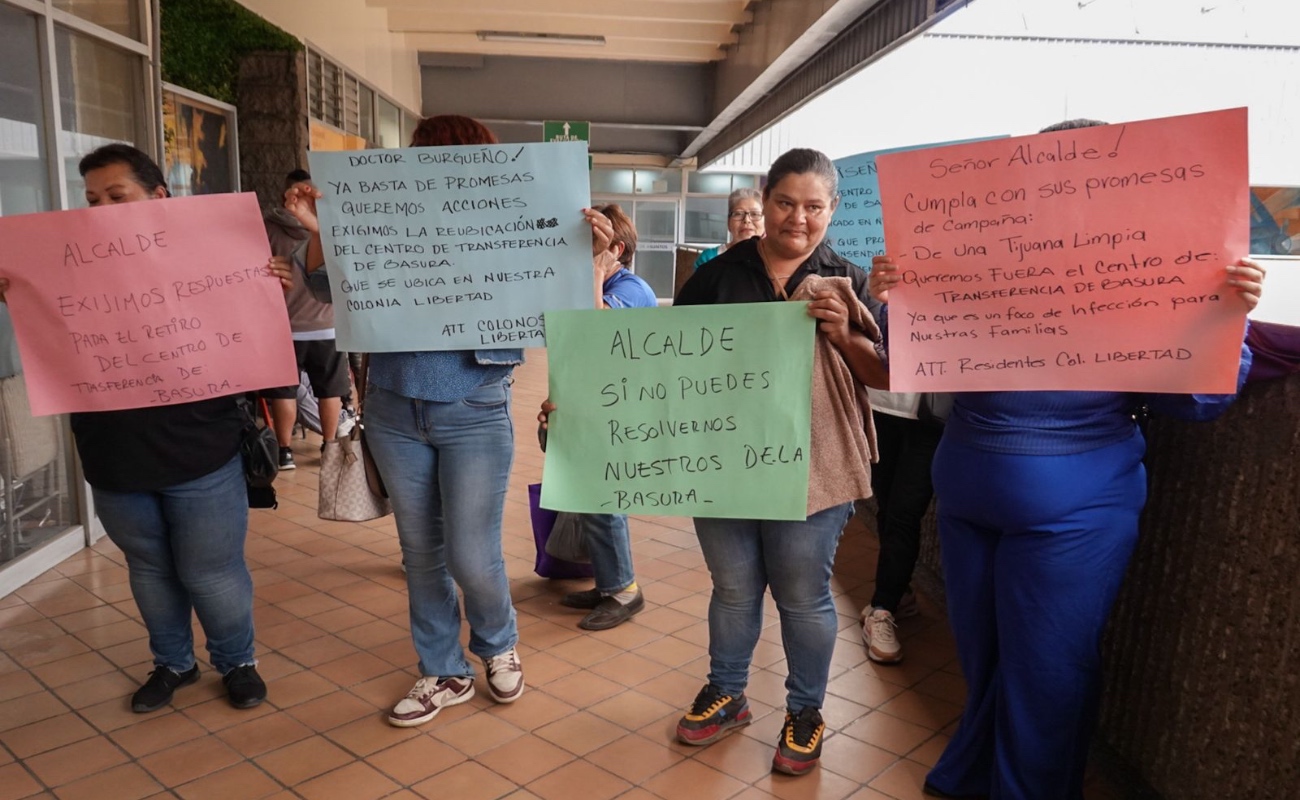 ALCALDE
EXIJIMOS RESPUESTAS
PADA EL RETIRO
DEL CENTRO DE
TRASFERENCIA DE
-BASURA-
DOCTOR BURGUEÑO!
YA BASTA DE PROMESAS
QUEREMOS ACCIONES
EXIGIMOS LA REUBICACIÓN
DEL CENTRO DE TRANSFERENCIA
DE BASURA.
QUE SE UBICA EN NUESTRA
COLONIA LIBERTAD
ATT COLONOS
LIBERTA
ALCALDE
SI NO PUEDES
RESOLVERNOS
NUESTROS DE LA
-BASURA-
Señor Alcalde!
Cumpla con sus promesas
de Campaña:
- De Una Tijuana Limpia
Queremos FUERA el Centro de:
TRANSFERENCIA DE BASURA
Ya que es un foco de Infección para
Nuestras Familias
ATT. Residentes Col. LIBERTAD
RUTA DE